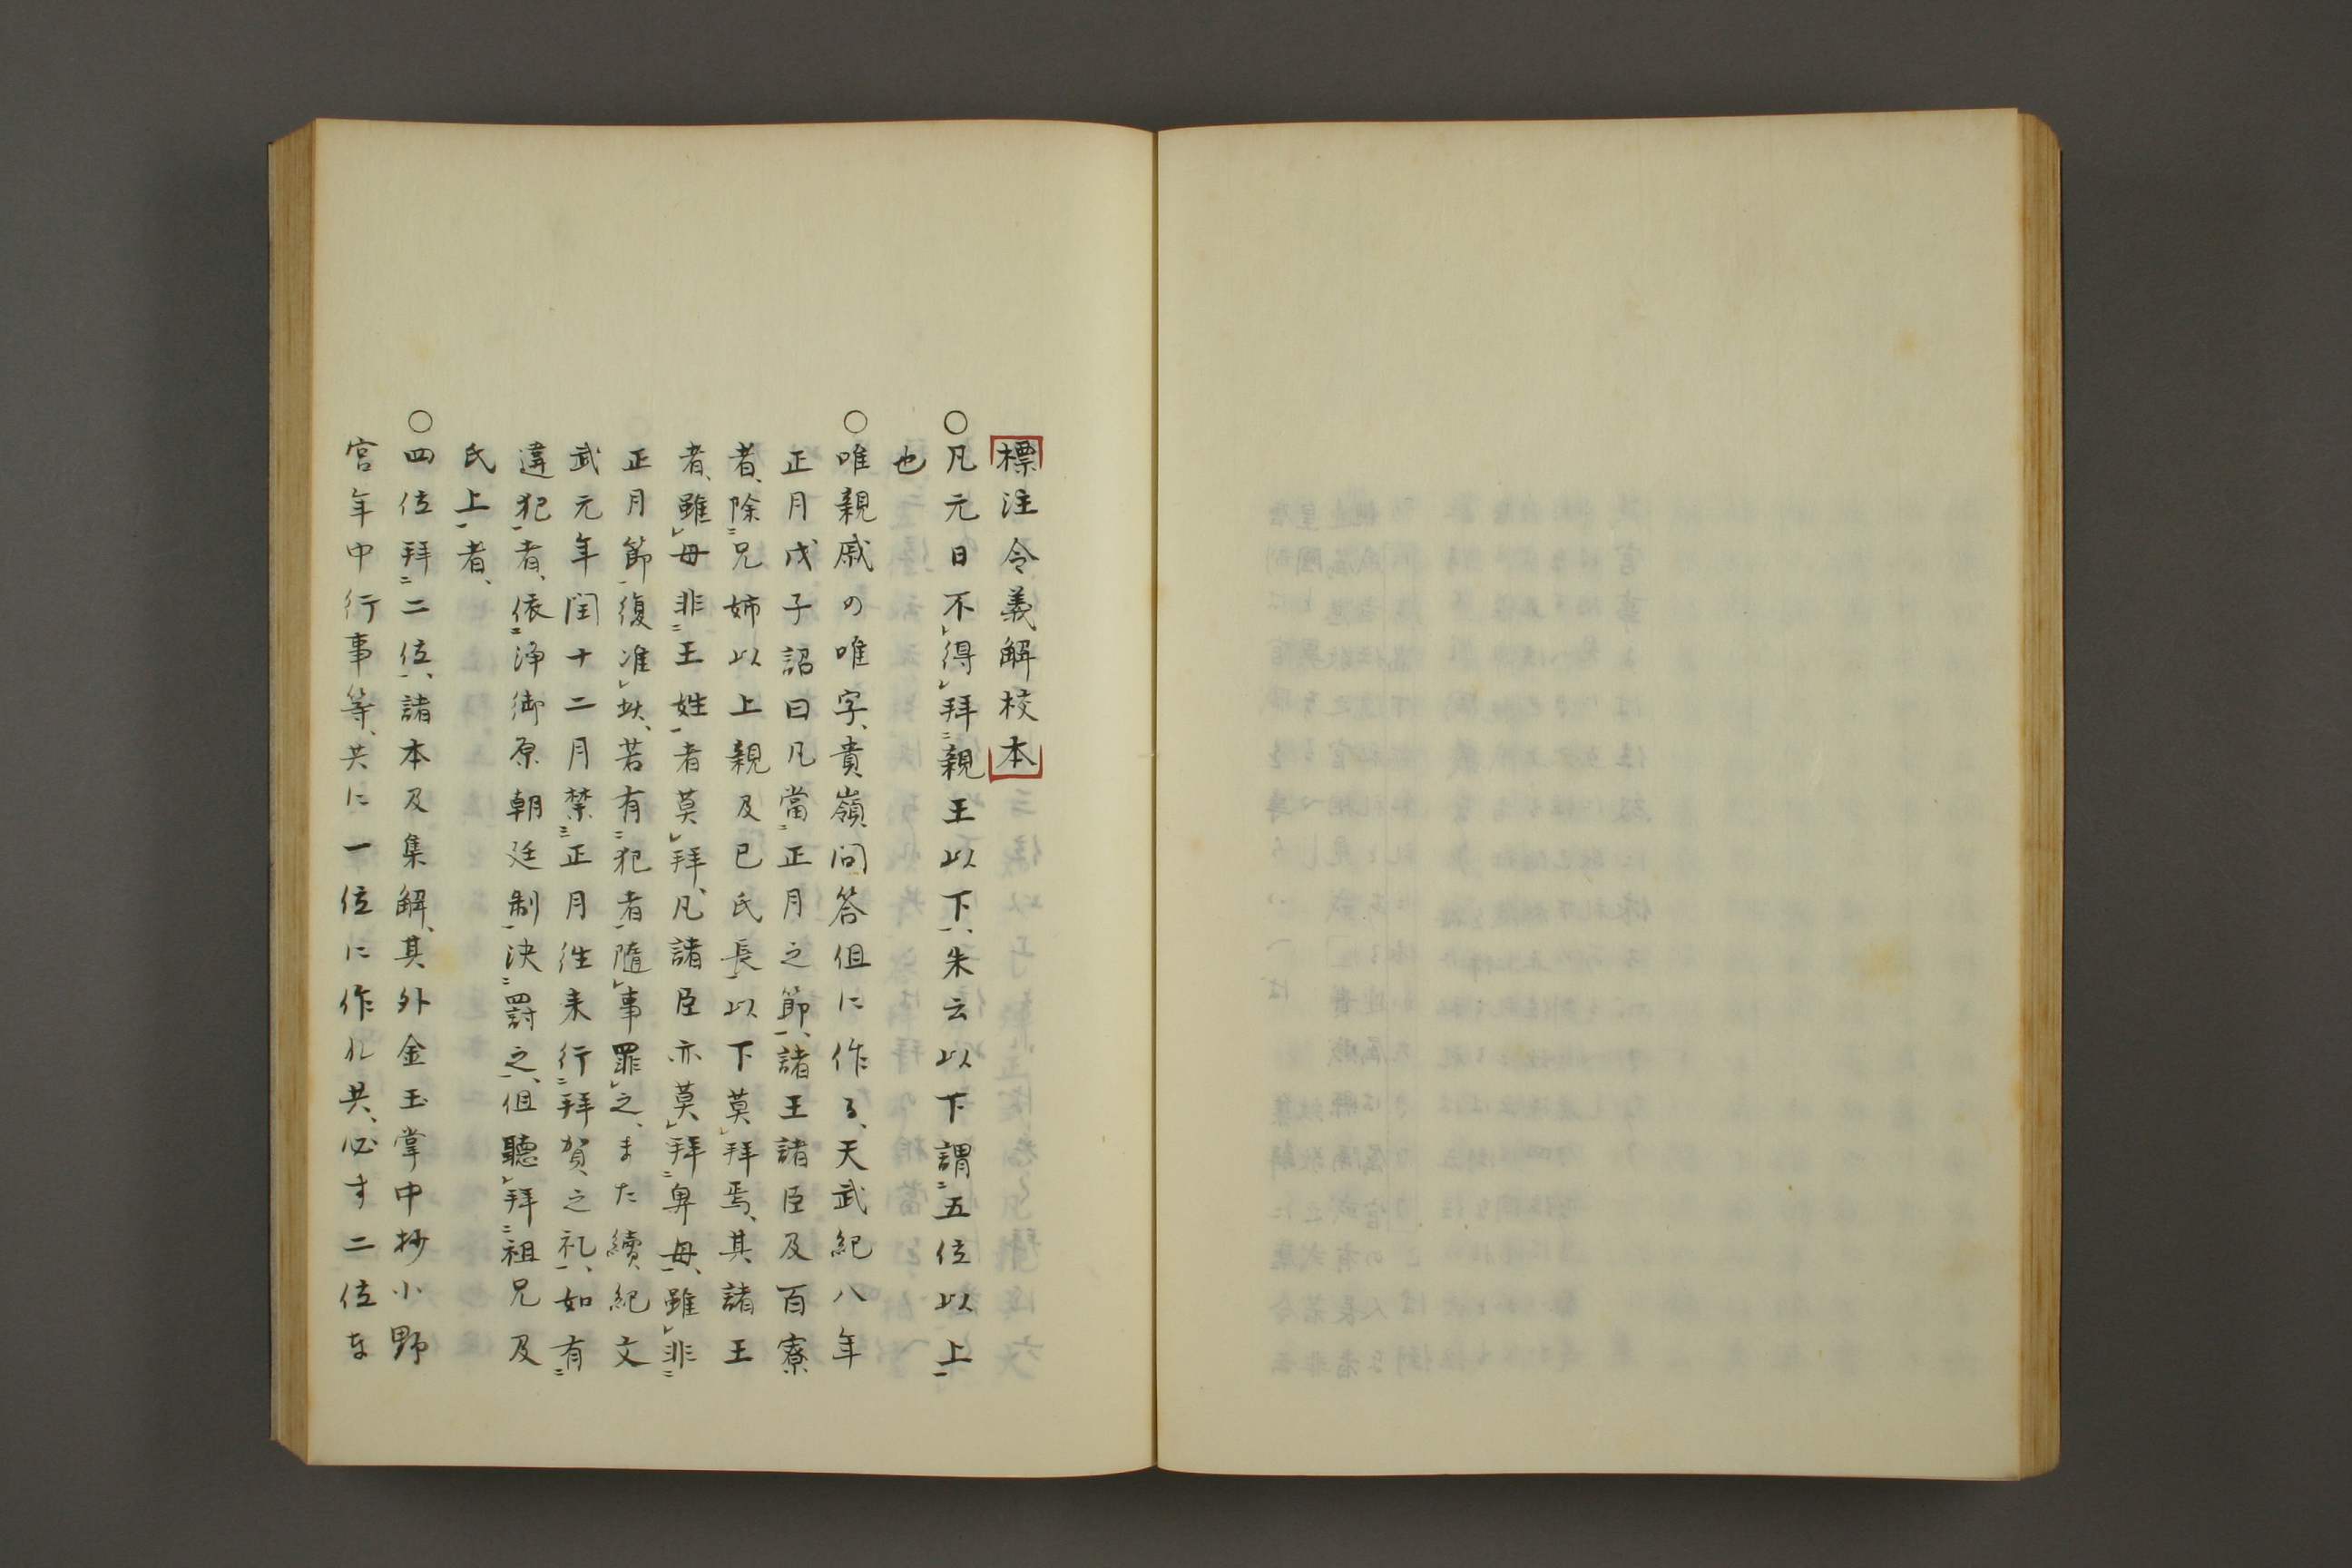 標注令義解校本
○凡元日不㆑得㆑拜㆓親王以下㆒、朱云以下謂㆓五位以上㆒
也
○唯親戚の唯字、貴嶺問答但に作る、天武紀八年
正月戊子詔曰凡當㆓正月之節㆒、諸王諸臣及百寮
者、除㆓兄姉以上親及己氏長㆒以下莫㆑拜焉、其諸王
者、雖㆑母非㆓王姓㆒者莫㆑拜、凡諸臣亦莫㆑拜㆓卑母㆒、雖㆑非㆓
正月節㆒復准㆑此、若有㆓犯者㆒隨㆑事罪㆑之、また續紀文
武元年閏十二月禁㆘正月往来行㆓拜賀之礼㆒、如有㆓
違犯㆒者、依㆓浄御原朝廷制㆒決㆓罸之㆒、但聽㆑拜㆓祖兄及
氏上㆒者、
○四位拜㆓二位㆒、諸本及集解、其外金玉掌中抄小野
宮年中行事等、共に一位に作れ共、必す二位な